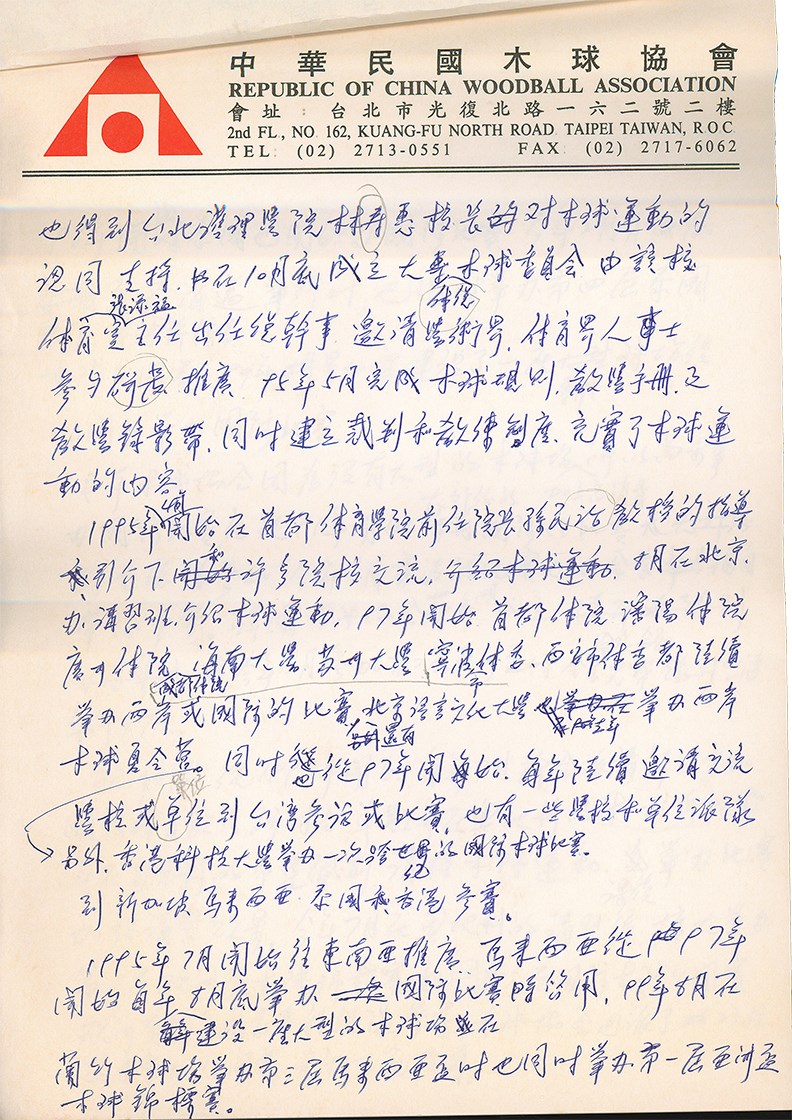 中華民國木球協會
REPUBLIC OF CHINA WOODBALL ASSOCIATION
會址：台北市光復北路一六二號二樓
2nd FL., NO. 162, KUANG-FU NORTH ROAD. TAIPEI TAIWAN, R.O.C.
TEL: (02) 2713-0551 FAX: (02) 2717-6062
也得到台北護理學院林壽惠校長的对木球運動的
認同 支持. 在10月底成立大專木球委員会 由該校
張添福 体總
体育室主任出任總幹事 邀請學術界. 体育界人事士
參与研發 推廣. 95年5月完成木球規則. 教學手冊. 及
教學錄影帶. 同时建立裁判和教練制度. 充實了木球運
動的内容.
1995年開始在首都体育學院前任院長孫民治教授的指導
和
引介下 開始 許多院校交流. 介紹木球運動. 8月在北京.
办講習班. 介紹木球運動. 97年開始首都体院 瀋陽体院
廣州体院 海南大學 苏州大學 寧波体委. 西安市体委都陸續
成都体院 市
舉办两岸或國际的比賽. 北京語言文化大學也舉办在舉办两岸
另外還有
木球夏令營。同时也從97年開始. 每年陸續邀請交流
單位
學校或單位到台湾參訪或比賽. 也有一些學校和單位派隊
另外. 香港科技大學舉办一次跨世紀的國际木球比賽.
到新加坡 馬來西亞 泰國 香港參賽。
1995年7月開始往東南亞推廣. 馬來西亞從97年
開始每年8月底舉办一次國际比賽. 99年8月在
建設一座大型的木球場並在
蘭竹木球場舉办第三屆馬來西亞盃时也同时舉办第一屆亞洲盃
木球錦標賽。